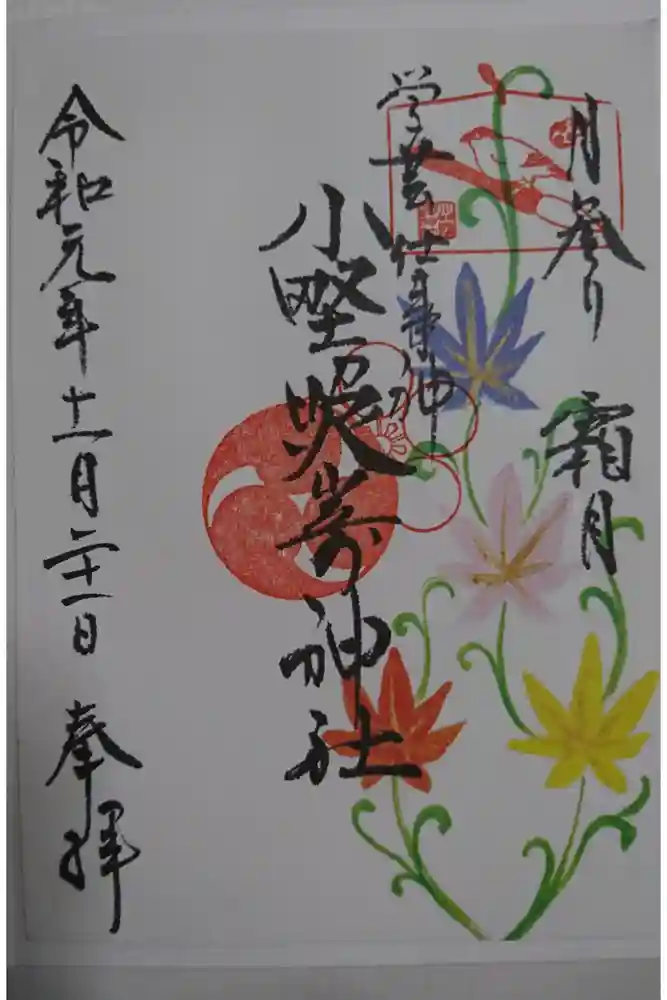 月参り　霜月
学芸仕事神
小野照嵜神社
令和元年十一月二十一日　奉拝